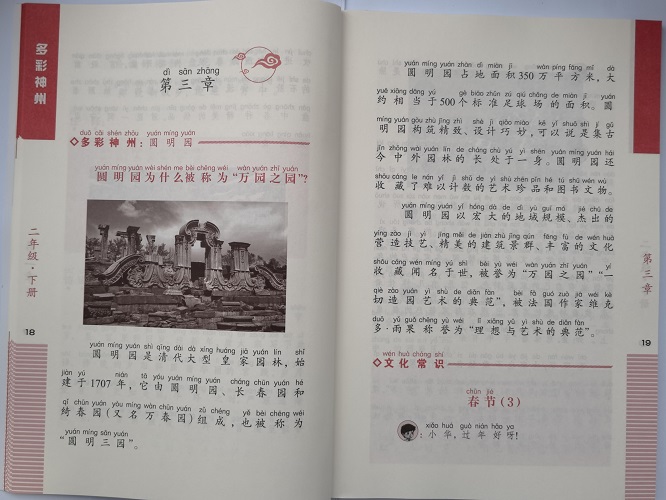 多彩神州
dì sān zhāng
第三章
duō cǎi shén zhōu yuán míng yuán
多彩神州：圆明园
yuán míng yuán wèi shén me bèi chēng wéi wàn yuán zhī yuán
圆明园为什么被称为“万园之园”？
yuán míng yuán shì qīng dài dà xíng huáng jiā yuán lín shǐ
圆明园是清代大型皇家园林，始
jiàn yú nián tā yóu yuán míng yuán cháng chūn yuán hé
建于1707年，它由圆明园、长春园和
qǐ chūn yuán yòu míng wàn chūn yuán zǔ chéng yě bèi chēng wéi
绮春园（又名万春园）组成，也被称为
yuán míng sān yuán
“圆明三园”。
二年级·下册
18
yuán míng yuán zhàn dì miàn jī wàn píng fāng mǐ dà
圆明园占地面积350万平方米，大
yuē xiāng dāng yú gè biāo zhǔn zú qiú chǎng de miàn jī yuán
约相当于500个标准足球场的面积。圆
míng yuán gòu zhù jīng zhì shè jì qiǎo miào kě yǐ shuō shì jí gǔ
明园构筑精致、设计巧妙，可以说是集古
jīn zhōng wài yuán lín de cháng chù yú yì shēn yuán míng yuán hái
今中外园林的长处于一身。圆明园还
shōu cáng le nán yǐ jì shù de yì shù zhēn pǐn hé tú shū wén wù
收藏了难以计数的艺术珍品和图书文物。
yuán míng yuán yǐ hóng dà de dì yù guī mó jié chū de
圆明园以宏大的地域规模、杰出的
yíng zào jì yì jīng měi de jiàn zhù jǐng qún fēng fù de wén huà
营造技艺、精美的建筑景群、丰富的文化
shōu cáng wén míng yú shì bèi yù wéi wàn yuán zhī yuán yí
收藏闻名于世，被誉为“万园之园”“一
qiè zào yuán yì shù de diǎn fàn bèi fǎ guó zuò jiā wéi kè
切造园艺术的典范”，被法国作家维克
duō yǔ guǒ chēng yù wéi lǐ xiǎng yǔ yì shù de diǎn fàn
多·雨果称誉为“理想与艺术的典范”。
wén huà cháng shí
文化常识
chūn jié
春节（3）
xiǎo huá guò nián hǎo ya
：小华，过年好呀！
第三章
19